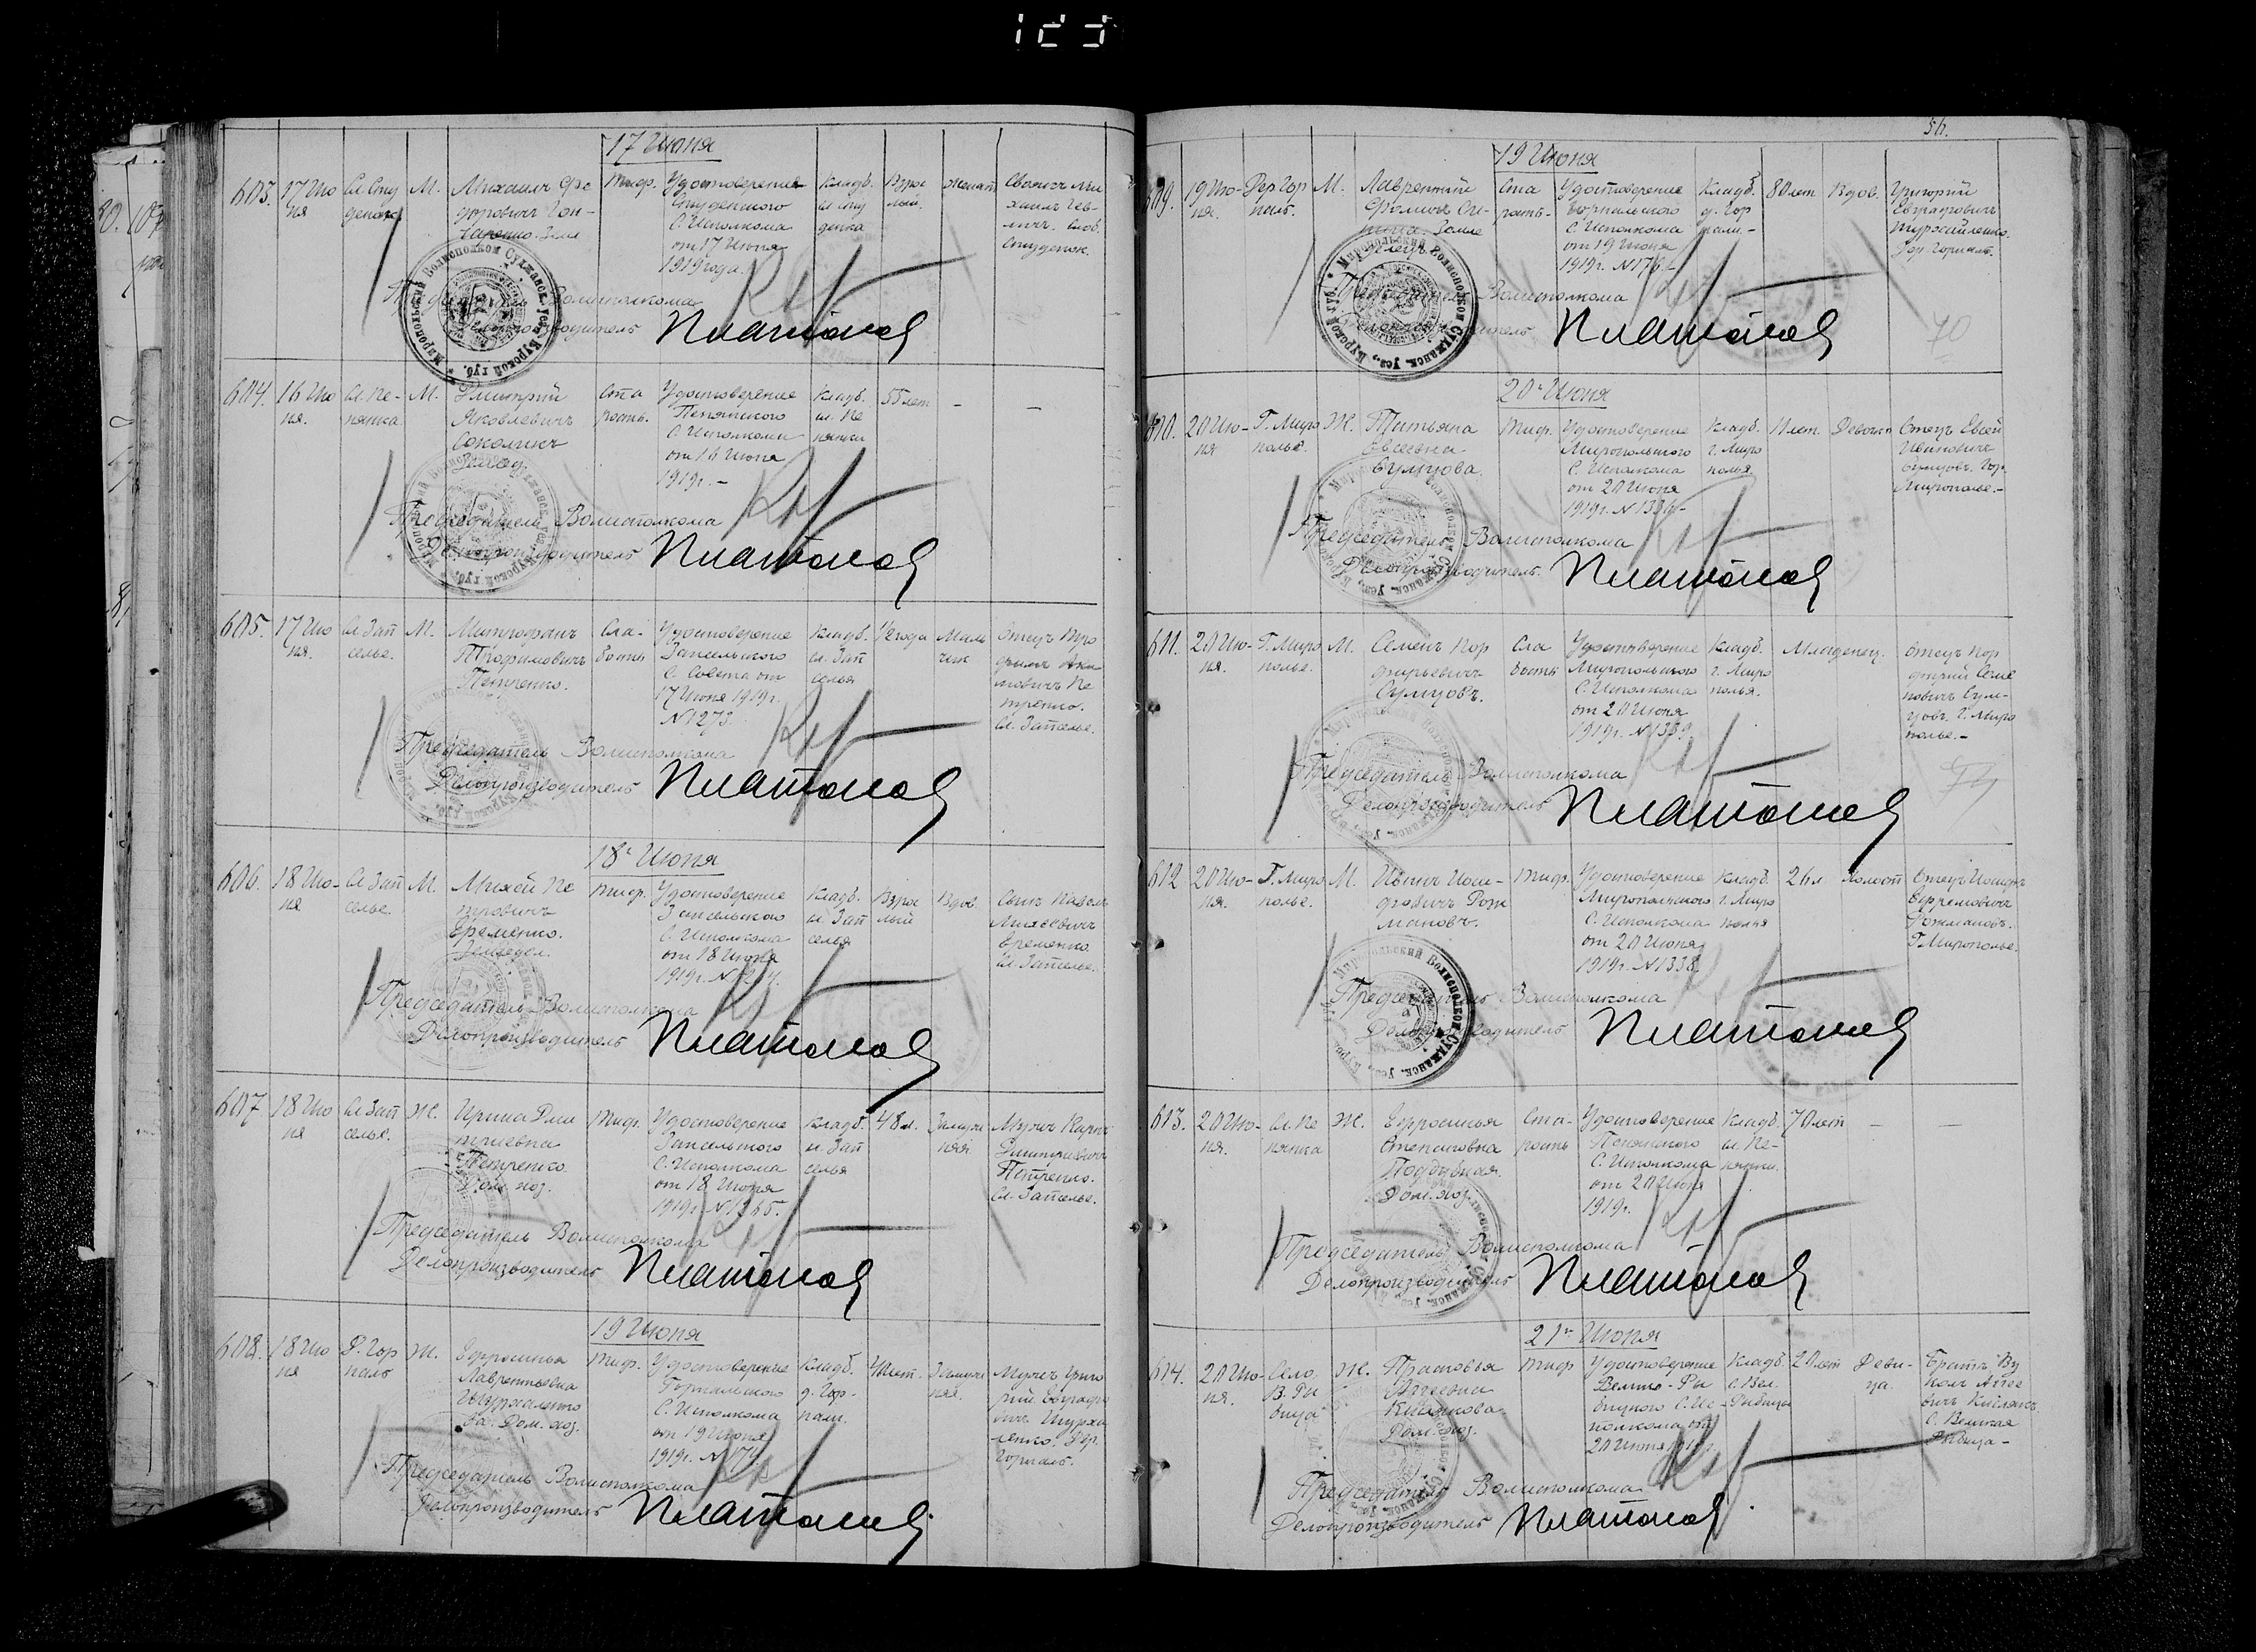 123
17 Июня
603. 17 Июня Сл Студенок М. Михаилъ Федоровичъ Гончаренко. Земл Тиф. Удостоверение Студенского С. Исполкома от 17 Июня 1919 года. Кладб. сл Студенка Взрослый. женат Слоб. Студенок.
Председатель Волисполкома
Делопроизводитель Платонов
604. 16 Июня. Сл. Пенянка М. Дмитрий Яковлевичъ Соколикъ Землед. Старость. Удостоверение Пенянского С. Исполкома от 16 Июня 1919г. – Кладб. сл. Пенянки 55 лет – –
Председатель Волисполкома
Делопроизводитель Платонов
605. 17 Июня. Сл. Запселье. М. Митрофанъ Трофимовичъ Петренко. Слабость Удостоверение Запсельского С. Совета от 17 Июня 1919г. N 1273. Кладб. сл. Запселья 1/2 года Мальчик Отецъ Петренко. Сл. Запселье.
Председатель Волисполкома
Делопроизводитель Платонов
18го Июня
606. 18 Июня Сл Запселье. М. Михей Петровичъ Еременко. Земледел. Тиф. Удостоверение Запсельского С. Исполкома от 18 Июня 1919г. Кладб. сл. Запселья Взрослый Вдов. Сынъ Павелъ Михеевичъ Еременко. Сл. Запселье.
Председатель Волисполкома
Делопроизводитель Платонов
607. 18 Июня Сл Запселье. Ж. Ирина Дмитриевна Петренко. Дом. хоз. Тиф. Удостоверение Запсельского С. Исполкома от 18 Июня 1919г. Кладб. сл. Запселья 48 л. Замужняя Мужъ Карпъ Дмитриевичъ Петренко. Сл. Запселье.
Председатель Волисполкома
Делопроизводитель Платонов
19 Июня
608. 18 Июня Д. Горналь Ж. Ефросинья Лаврентьевна Дом. хоз. Тиф. Удостоверение Горнальского С. Исполкома от 19 Июня 1919г. N 174 Кладб. д. Горнали. Замужняя. Мужъ Григорий Евграфовичъ Дер. Горналь.
Председатель Волисполкома
Делопроизводитель Платонов
56.
19 Июня
609. 19 Июня. Дер Горналь. М. Лаврентий Фомичъ Землед. Старость. Удостоверение Горнальского С Исполкома от 19 Июня 1919г. N 176 Кладб. д. Горнали. – 80 лет Вдов. Григорий Евграфовичъ Дер Горналь.
Председатель Волисполкома
Делопроизводитель Платонов
70
20го Июня
610. 20 Июня Г. Мирополье. Ж. Татьяна Евсеевна Сумцова. Тиф. Удостоверение Миропольского С. Исполкома от 20 Июня 1919г. Кладб. г. Мирополья 11 лет. Девочка Отецъ Евсей Ивановичъ Сумцовъ. Гор. Мирополье. –
Председатель Волисполкома
Делопроизводитель. Платонов
611. 20 Июня. Г. Мирополье. М. Семенъ Порфирьевичъ Сумцовъ. Слабость Удостоверение Миропольского С. Исполкома от 20 Июня 1919г. N 1339 Кладб. г. Мирополья. Младенец. Отецъ Порфирий Семеновичъ Сумцовъ. г. Мирополье. –
Председатель Волисполкома
Делопроизводитель Платонов
612 20 Июня. Г. Мирополье. М. Иванъ Иосифовичъ Рожмановъ. Тиф. Удостоверение Миропольского С. Исполкома от 20 Июня 1919г. N 1338 Кладб. г. Мирополья 26 л. Холост Отецъ Иосифъ Ефремовичъ Рожмановъ. Г. Мирополье.
Председатель Волисполкома
Делопроизводитель Платонов
613. 20 Июня. Сл. Пенянка Ж. Ефросинья Степановна Поддубная. Дом. хоз. Старость Удостоверение Пенянского С. Исполкома от 20 Июня 1919г. Кладб. сл. Пенянки. 70 лет – –
Председатель Волисполкома
Делопроизводитель Платонов
21го Июня
614. 20 Июня. Село В. Рыбица Ж. Прасковья Дом. хоз. Тиф Удостоверение Велико-Рыбицкого С. Исполкома от 20 Июня 1919г. Кладб. С. Вел. Рыбицы 20 лет Девица. Братъ С. Великая Рыбица –
Председатель Волисполкома
Делопроизводитель Платонов
Миропольский Волисполком Суджанск. уез. Курской губ.